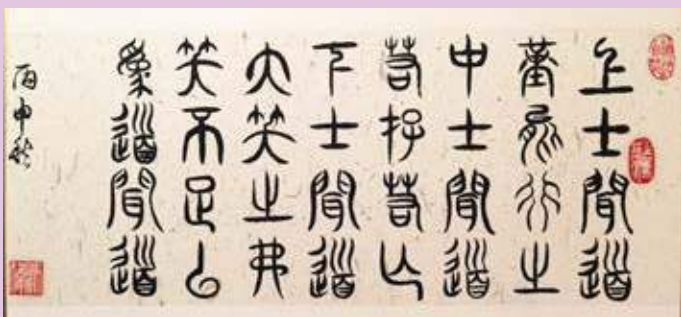 上士聞道
堇能行之
中士聞道
若存若亡
下士聞道
大笑之弗
笑不足以
為道聞道
丙申秋